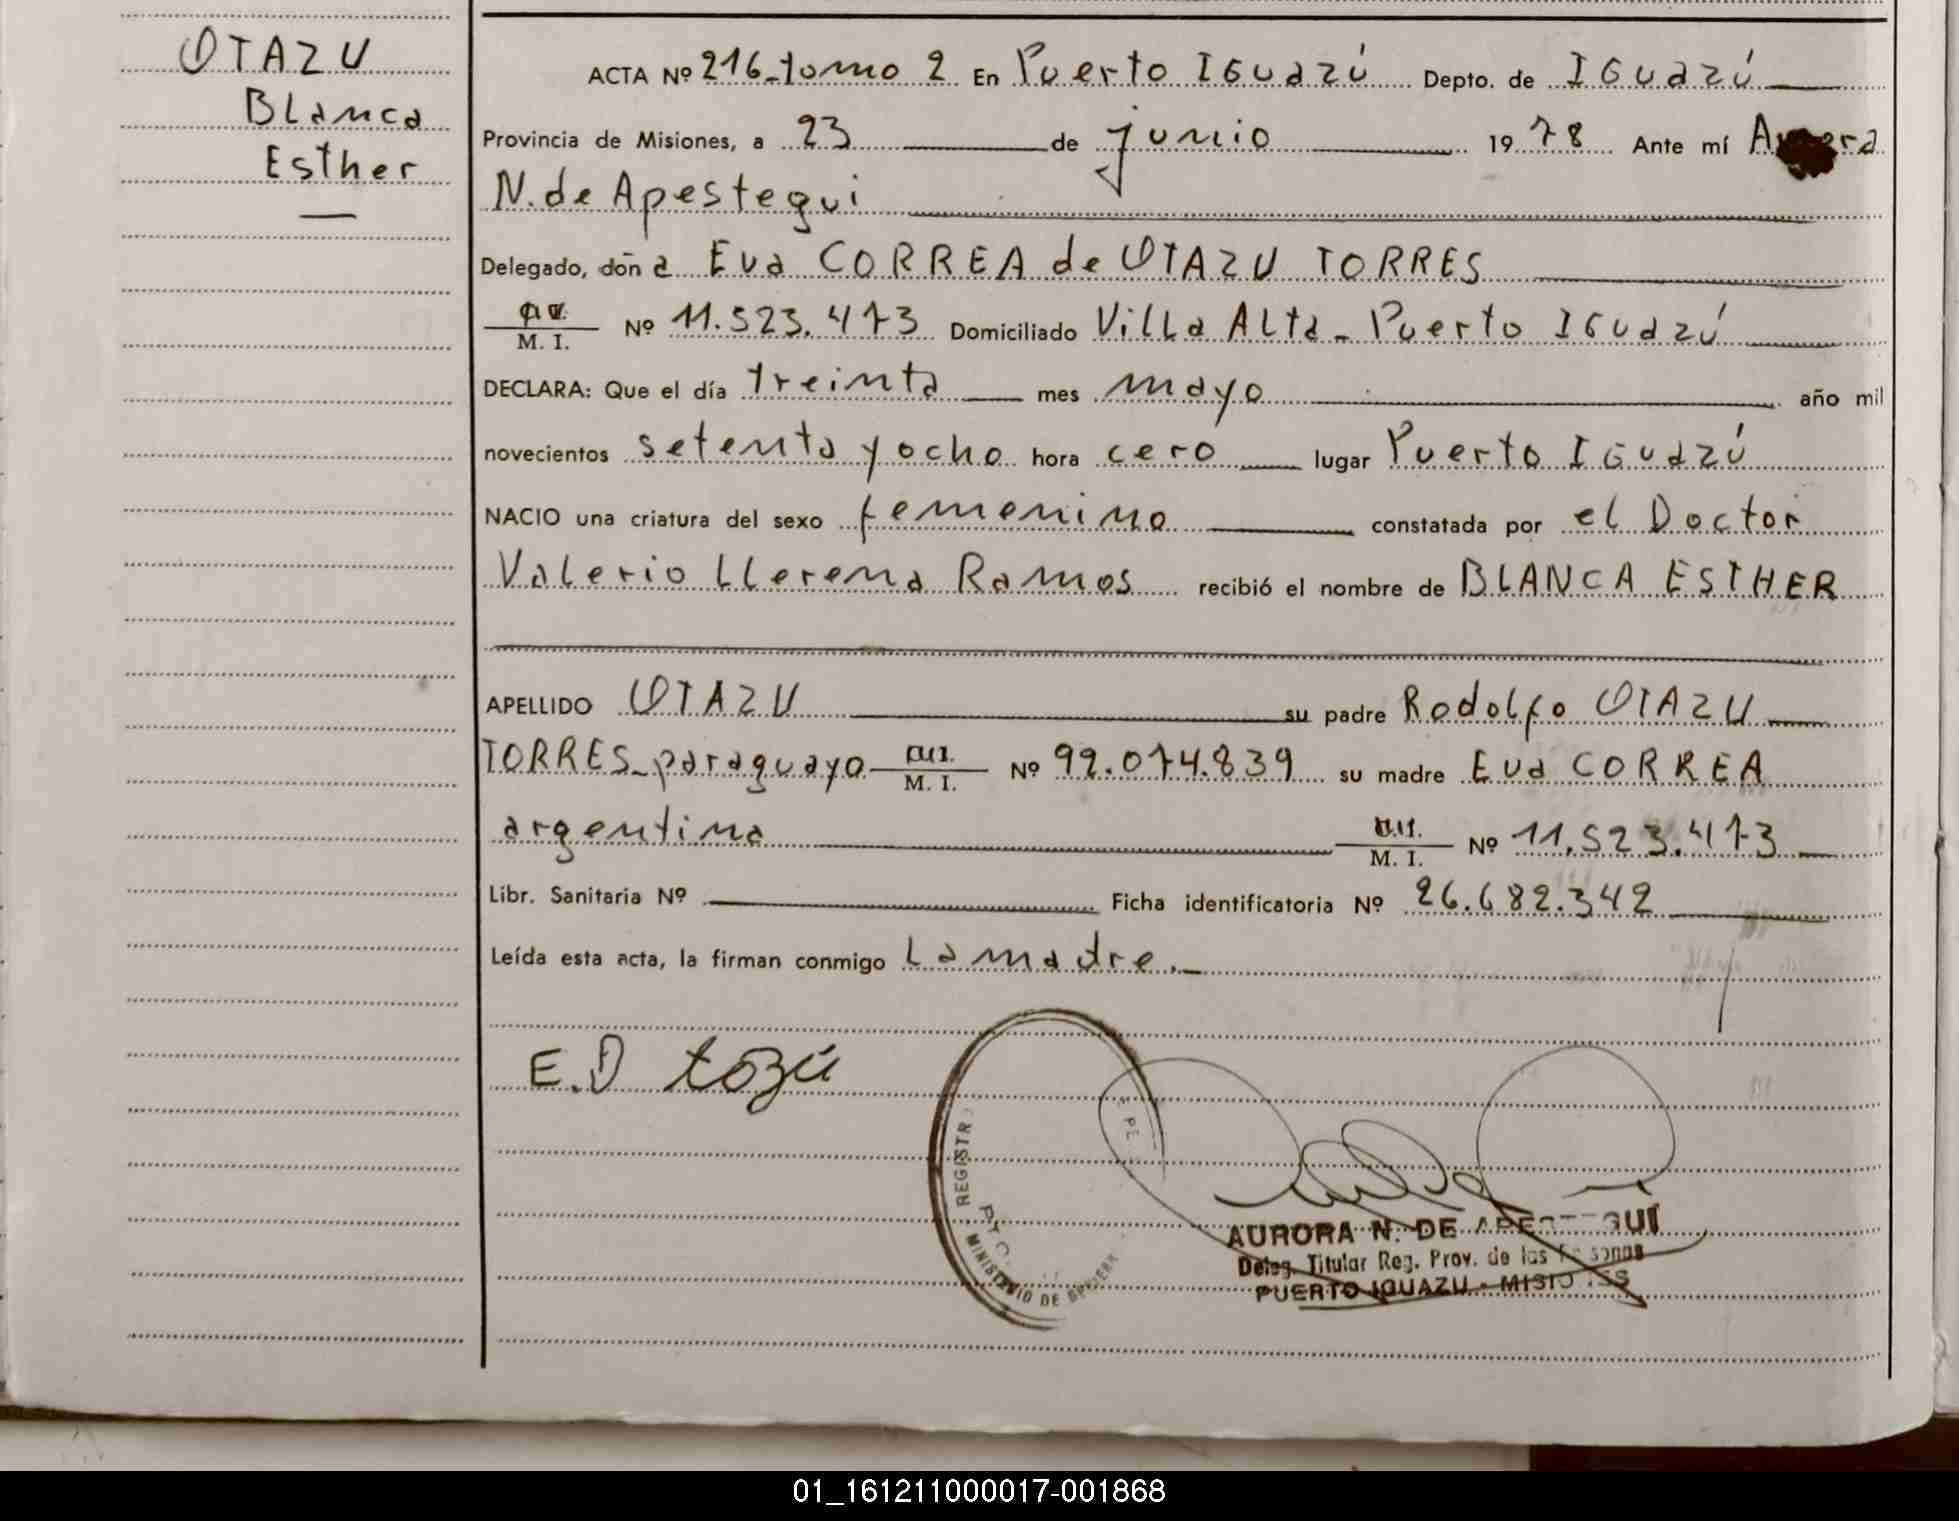 OTAZU
Blanca
Esther
ACTA Nº 216-tomo 2 En Puerto IGuazú Depto. de IGuazú
Provincia de Misiones, a 23 de junio 1978 Ante mí
N. de Apestegui
Delegado, don a Eva CORREA de OTAZU TORRES
M. I. Nº 11.523.473 Domiciliado Villa Alta - Puerto IGuazú
DECLARA: Que el día treinta mes mayo año mil
novecientos setenta y ocho hora cero lugar Puerto IGuazú
NACIO una criatura del sexo femenino constatada por el Doctor
Valerio Llerena Ramos recibió el nombre de BLANCA ESTHER
APELLIDO OTAZU su padre Rodolfo OTAZU
TORRES - paraguayo M. I. Nº 92.074.839 su madre Eva CORREA
argentina M. I. Nº 11.523.473
Libr. Sanitaria Nº Ficha identificatoria Nº 26.682.342
Leída esta acta, la firman conmigo La madre.
REGISTR
MINISTERIO DE
AURORA N. DE
Deleg. Titular Reg. Prov. de las
PUERTO IGUAZU -
01_161211000017-001868